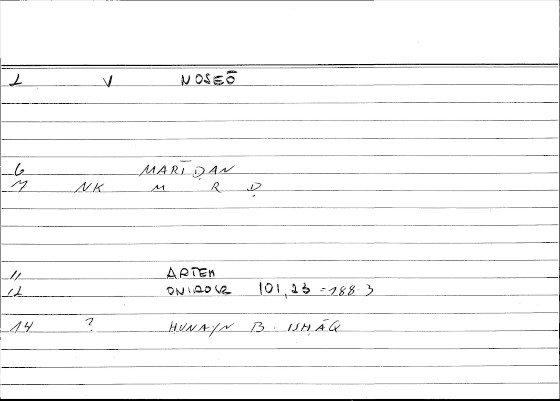 1 V NOSEŌ
6 MARĪḌAN
M NK M R Ḍ
11 ARTEM
12 ONIROCR 101,23 = 188.3
14 ? ḤUNAYN B. ISḤĀQ